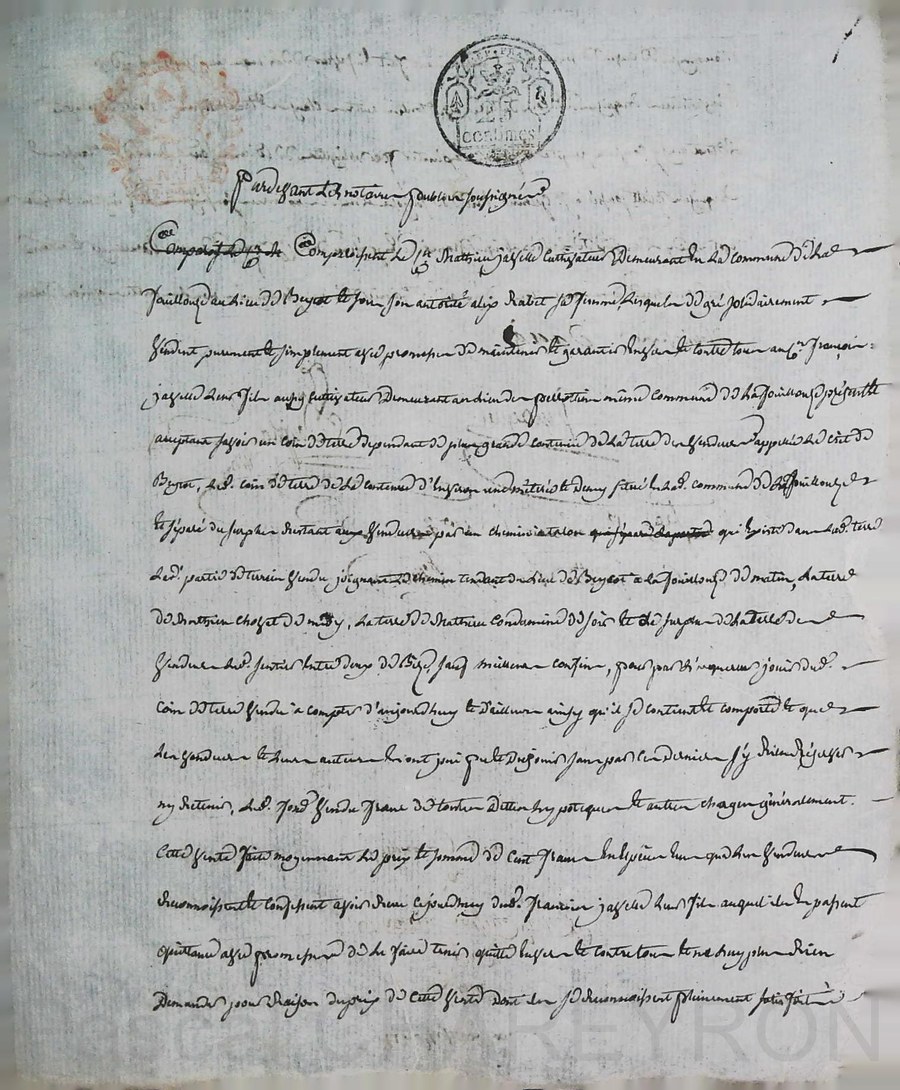 REP. FRA.
25
centimes
Pardevant Les notaires publics soussignés
Comparoit Le Cn. Comparoissent Le Cn. Mathieu javelle Cultivateur Demeurant En La Commune de La
fouillouse au Lieu de Beyçot et sous son autorité alix Rabet sa femme Lesquels de gré solidairement
Vendent purement et simplement avec promesse de maintenir et garantir Envers et Contre tous au Cn. françois
javelle Leur fils aussy Cultivateur Demeurant au Lieu de même Commune de La fouillouse présent et
acceptant savoir un Coin de terre dependant de plus grande Contenue de La terre des Vendeurs appellée Le de
Beyçot, Led. Coin de terre de La Contenue d'Environ une et Demy situé En Lad. commune de La fouillouse
et séparé du surplus Restant aux Vendeurs par un chemin qui Existe dans Lad. terre
Lad. partie de terrein Vendu joignant Le chemin tendant du Lieu de Beyçot a La fouillouse de matin, La terre
de Mathieu de midy, La terre de Mathieu Condamine de soir et Le surplus de La terre des
Vendeurs Led. sentier Entre deux de Bize, sauf meilleurs Confins, pour par L'acquereur jouir dud.
Coin de terre Vendu a Compter d'aujourdhuy et D'ailleurs ainsy qu'il se Contient et Comporte et que
Les Vendeurs et Leurs auteurs En ont joui pu et Du jouir sans par Ces Derniers s'y Rien Réserver
ny Retenir, Led. fond Vendu franc de toutes Dettes hypoteques et autres charges généralement.
Cette Vente faite moyennant Le prix et somme de Cent francs En Espèces que Les Vendeurs
Reconnoissent et Confessent avoir Reçu Cejourdhuy dud. françois javelle Leur fils auquel ils En passent
quittance avec promesse de Le faire tenir quitte Envers et Contre tous et ne luy plus Rien
Demander pour Raison du prix de Cette Vente Dont ils se Reconnoissent pleinement satisfaits
REYRON